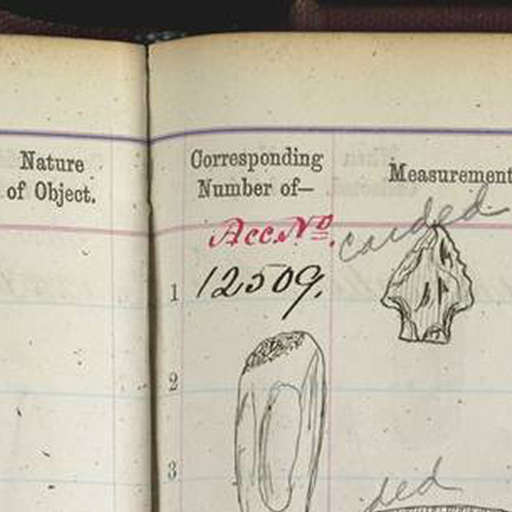 Nature
of Object.
Corresponding
Number of—
Measurement
Acc. No.
carded
1 12509.
2
3
ded